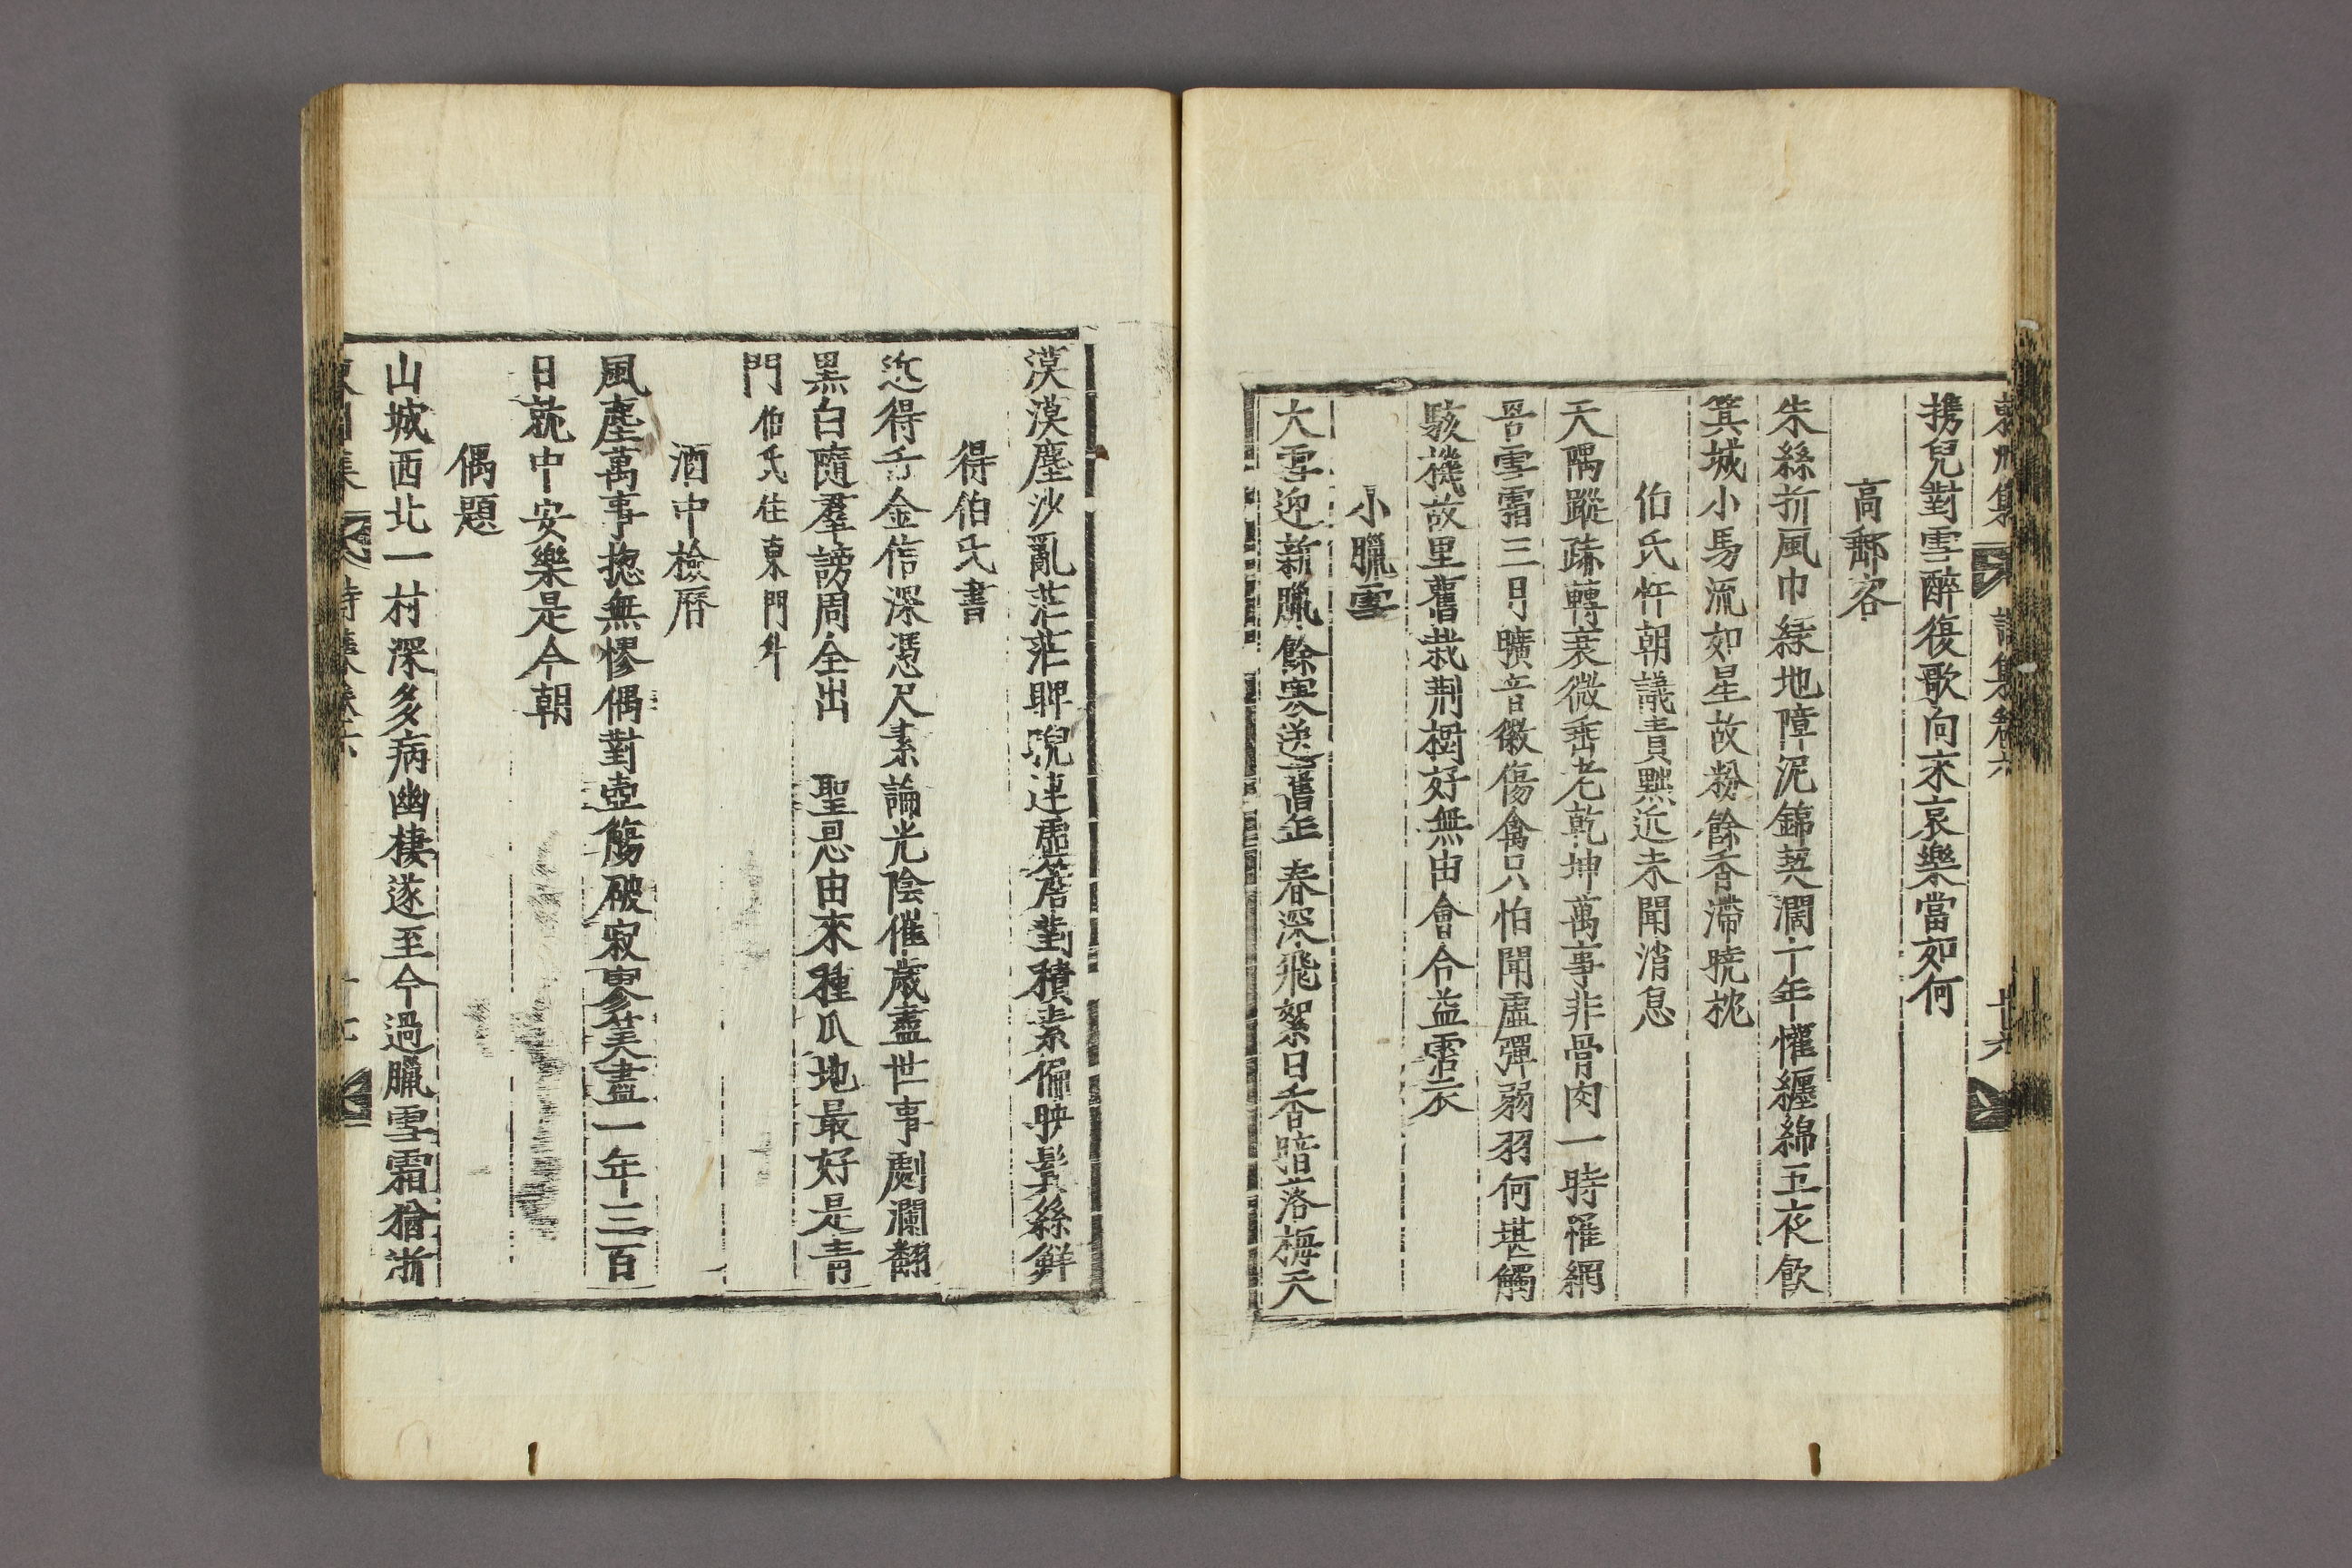 携兒對雪醉復歌向來哀樂當如何
高鄰客
朱絲折風巾綠地障泥錦契濶十年懽纏綿五夜飮
箕城小馬流如星故粉餘香滯曉枕
伯氏忤朝議責黜近未聞消息
天隅蹤疎轉衰微垂老乾坤萬事非骨肉一時罹網
罟雪霜三月曠音徽傷禽只怕聞虛彈弱羽何堪觸
駭機故里舊栽荆樹好無由會合益霑衣
小臘雪
大雪迎新臘餘寒送舊年春深飛絮日香暗落梅天
漠漠塵沙亂茫茫睥睨連虛簷對積素偏映鬂絲鮮
得伯氏書
近得千金信深憑尺素論光陰催歲盡世事劇瀾翻
黑白隨羣謗周全出 聖恩由來種瓜地最好是靑
門 伯氏住東門外
酒中檢曆
風塵萬事揔無憀偶對壺觴破寂寥笑盡一年三百
日就中安樂是今朝
偶題
山城西北一村深多病幽棲遂至今過臘雪霜猶浙